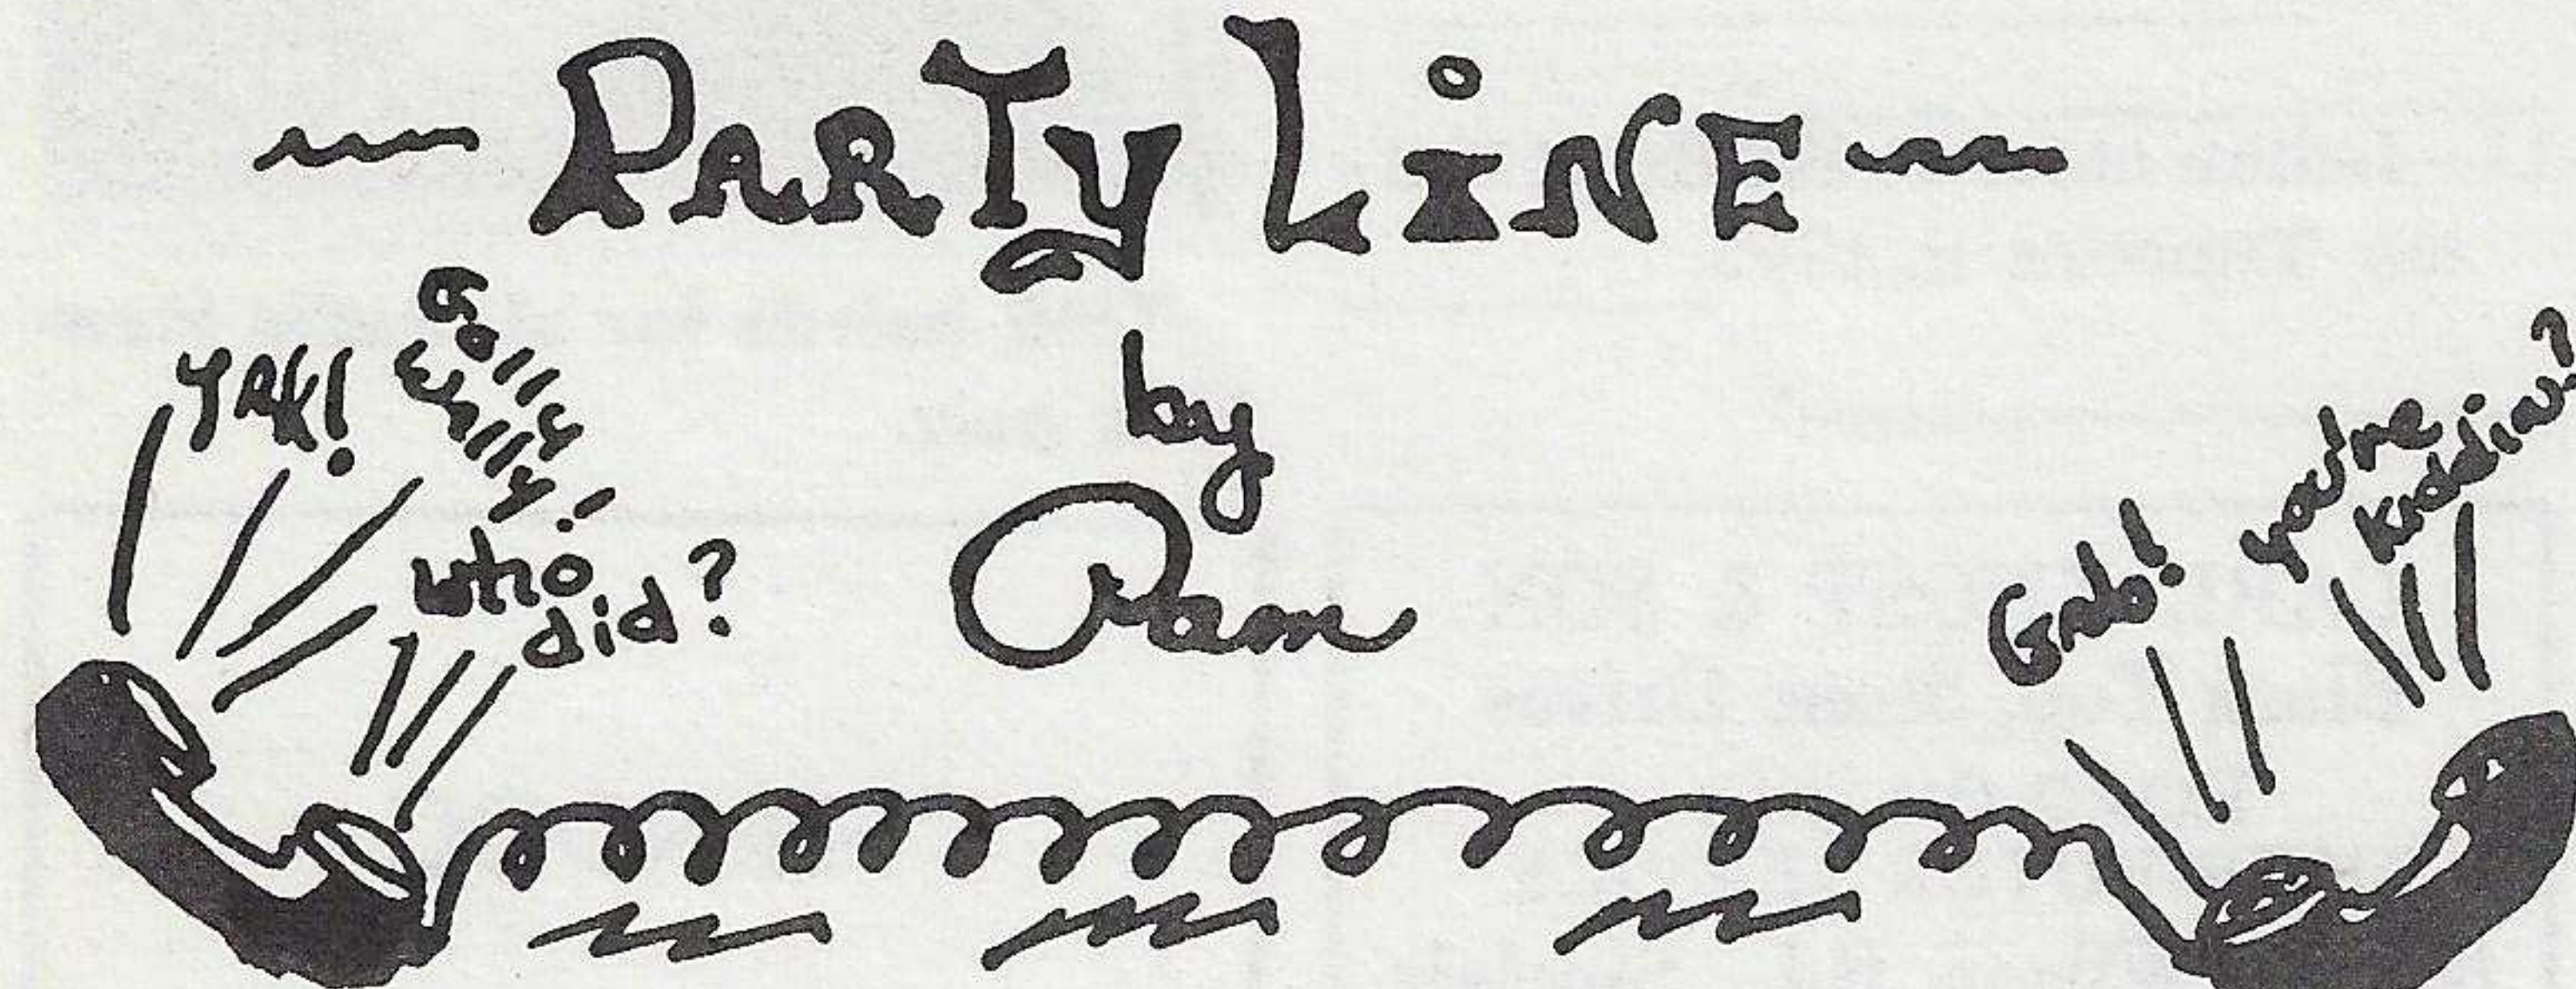 ~ PARTY LiNE ~
by
Pam
YAK!
Golly
who
did?
Gab!
you're
Kiddin?